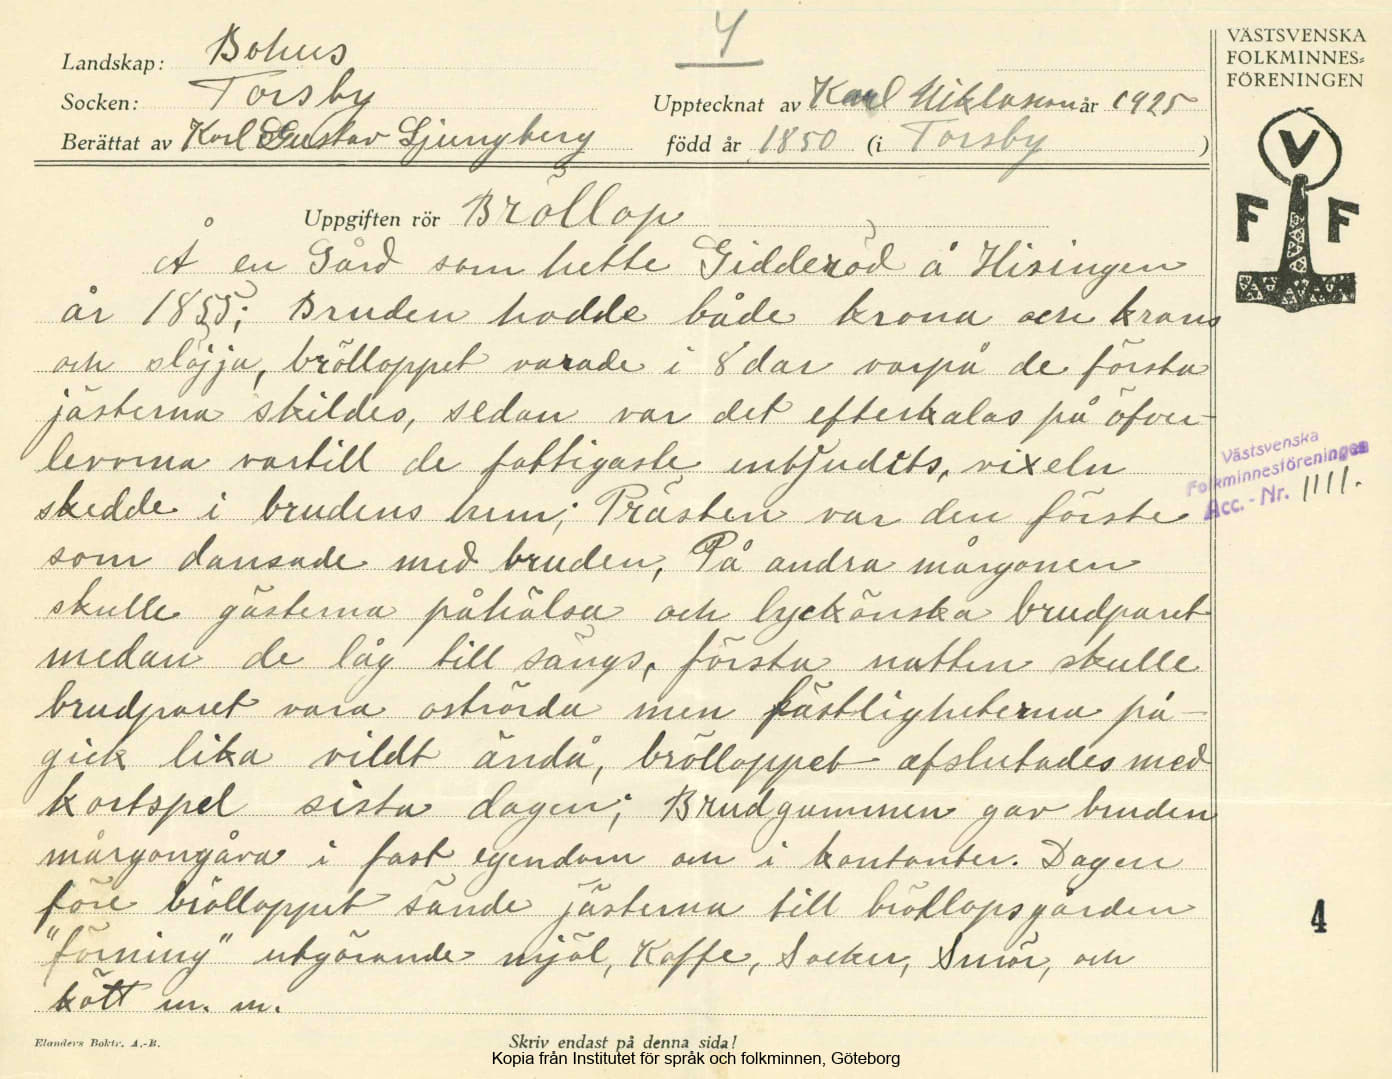 4
VÄSTSVENSKA
FOLKMINNES=
FÖRENINGEN
V
F F
Landskap: Bohus
Socken: Torsby
Upptecknat av Karl Niklasson år 1925
Berättat av Karl Gustav Ljungberg
född år 1850 (i Torsby)
Uppgiften rör Bröllop
Å en Gård som hette Gidderöd å Hisingen
år 1855; Bruden hadde både krona och krans
och slöjja, brölloppet varade i 8 dar varpå de första
jästerna skildes, sedan var det efterkalas på öfver-
levorna vartill de fattigaste inbjudits, vixeln
skedde i brudens hem; Prästen var den förste
som dansade med bruden, På andra mårgonen
skulle gästerna påhälsa och lyckönska brudparet
medan de låg till sängs, första natten skulle
brudparet vara ostörda men fästligheterna på-
gick lika vildt ändå, brölloppet afslutades med
kortspel sista dagen; Brudgummen gav bruden
mårgongåva i fast egendom om i kontanter. Dagen
före bröllöppet sände jästerna till bröllopsgården
"förning" utgörande mjöl, Kaffe, Socker, Smör, och
kött m. m.
Västsvenska
Folkminnesföreningen
Acc. - Nr. 1111.
4
Elanders Boktr. A.-B.
Skriv endast på denna sida!
Kopia från Institutet för språk och folkminnen, Göteborg